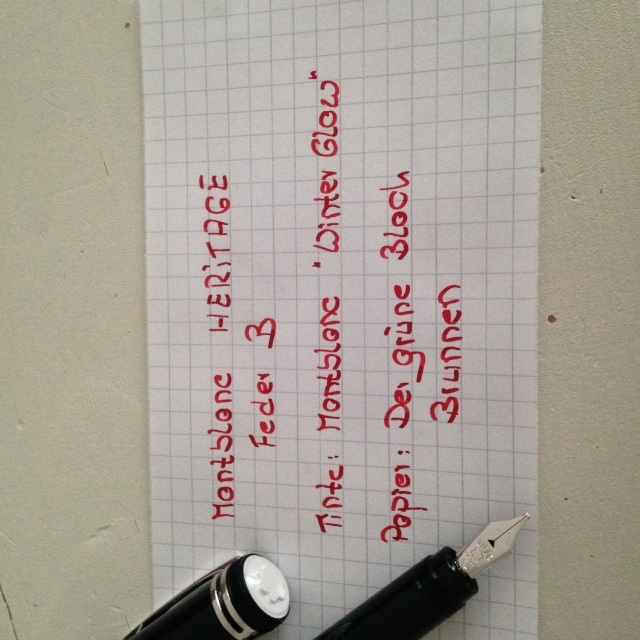 Montblanc HERiTAGE
Feder B
Tinte: Montblanc "Winter Glow"
Papier: Der grüne Block
Brunnen